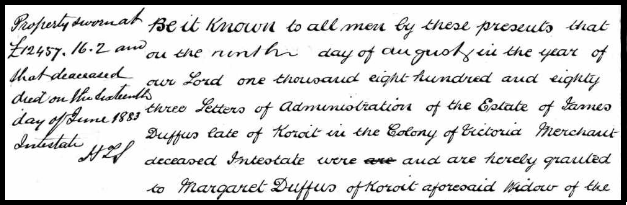 Property sworn at
£12457.16.2 and
that deceased
died on the sixteenth
day of June 1883
Intestate
Be it Known to all men by these presents that
on the ninth day of august in the year of
our Lord one thousand eight hundred and eighty
three Letters of Administration of the Estate of James
Duffus late of Koroit in the Colony of Victoria Merchant
deceased Intestate were are and are hereby granted
to Margaret Duffus of Koroit aforesaid Widow of the